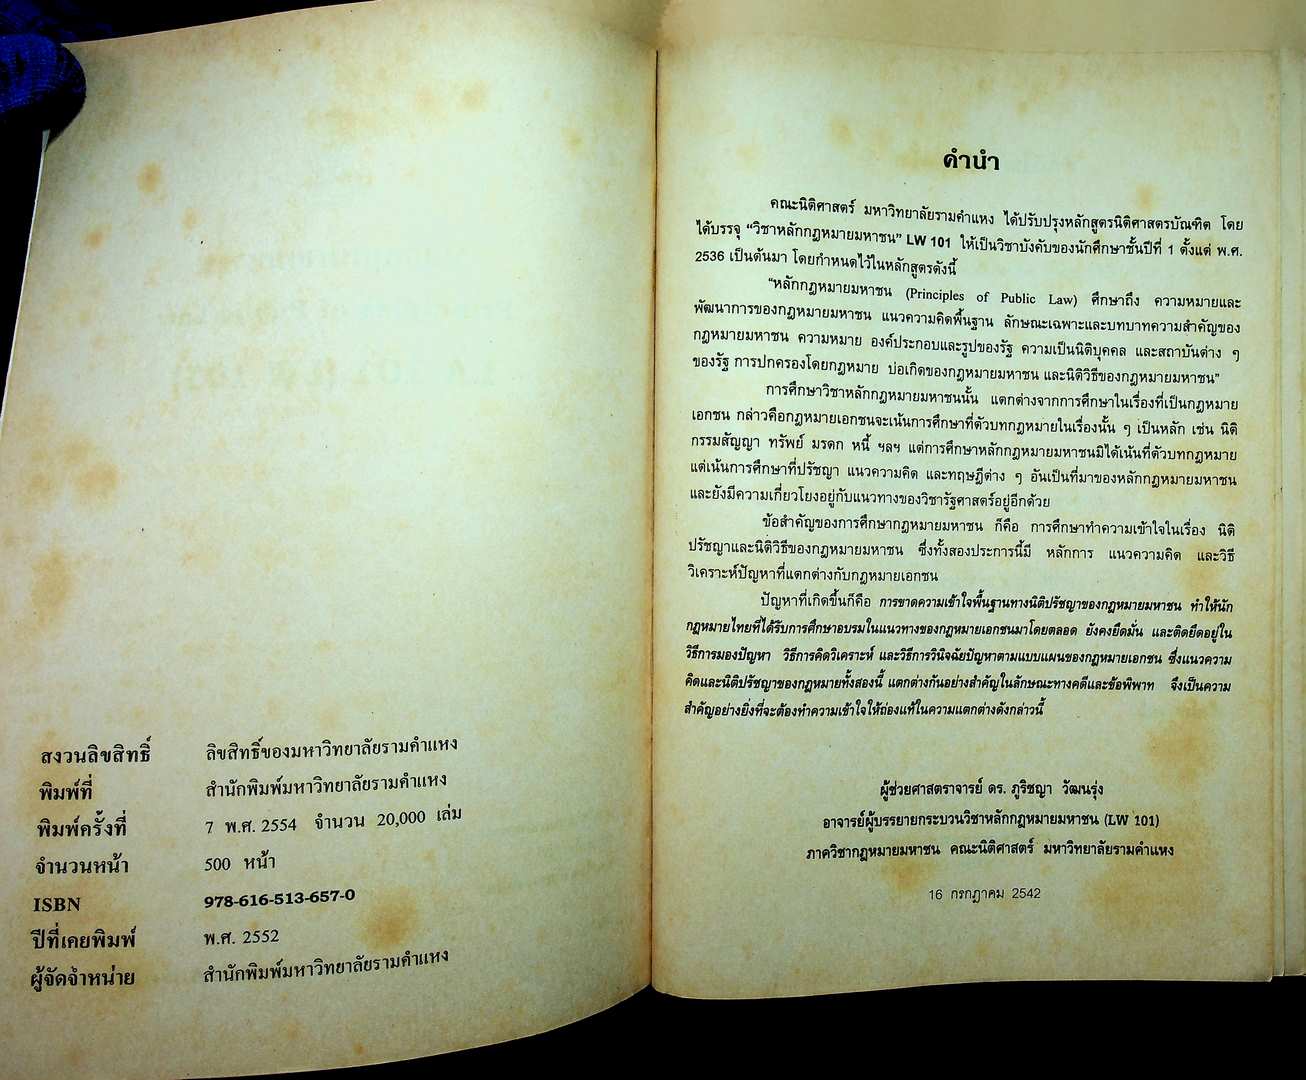 สงวนลิขสิทธิ์ ลิขสิทธิ์ของมหาวิทยาลัยรามคำแหง
พิมพ์ที่ สำนักพิมพ์มหาวิทยาลัยรามคำแหง
พิมพ์ครั้งที่ 7 พ.ศ. 2554 จำนวน 20,000 เล่ม
จำนวนหน้า 500 หน้า
ISBN 978-616-513-657-0
ปีที่เคยพิมพ์ พ.ศ. 2552
ผู้จัดจำหน่าย สำนักพิมพ์มหาวิทยาลัยรามคำแหง
คำนำ
คณะนิติศาสตร์ มหาวิทยาลัยรามคำแหง ได้ปรับปรุงหลักสูตรนิติศาสตรบัณฑิต โดย
ได้บรรจุ “วิชาหลักกฎหมายมหาชน” LW 101 ให้เป็นวิชาบังคับของนักศึกษาชั้นปีที่ 1 ตั้งแต่ พ.ศ.
2536 เป็นต้นมา โดยกำหนดไว้ในหลักสูตรดังนี้
“หลักกฎหมายมหาชน (Principles of Public Law) ศึกษาถึง ความหมายและ
พัฒนาการของกฎหมายมหาชน แนวความคิดพื้นฐาน ลักษณะเฉพาะและบทบาทความสำคัญของ
กฎหมายมหาชน ความหมาย องค์ประกอบและรูปของรัฐ ความเป็นนิติบุคคล และสถาบันต่าง ๆ
ของรัฐ การปกครองโดยกฎหมาย บ่อเกิดของกฎหมายมหาชน และนิติวิธีของกฎหมายมหาชน”
การศึกษาวิชาหลักกฎหมายมหาชนนั้น แตกต่างจากการศึกษาในเรื่องที่เป็นกฎหมาย
เอกชน กล่าวคือกฎหมายเอกชนจะเน้นการศึกษาที่ตัวบทกฎหมายในเรื่องนั้น ๆ เป็นหลัก เช่น นิติ
กรรมสัญญา ทรัพย์ มรดก หนี้ ฯลฯ แต่การศึกษาหลักกฎหมายมหาชนมิได้เน้นที่ตัวบทกฎหมาย
แต่เน้นการศึกษาที่ปรัชญา แนวความคิด และทฤษฎีต่าง ๆ อันเป็นที่มาของหลักกฎหมายมหาชน
และยังมีความเกี่ยวโยงอยู่กับแนวทางของวิชารัฐศาสตร์อยู่อีกด้วย
ข้อสำคัญของการศึกษากฎหมายมหาชน ก็คือ การศึกษาทำความเข้าใจในเรื่อง นิติ
ปรัชญาและนิติวิธีของกฎหมายมหาชน ซึ่งทั้งสองประการนี้มี หลักการ แนวความคิด และวิธี
วิเคราะห์ปัญหาที่แตกต่างกับกฎหมายเอกชน
ปัญหาที่เกิดขึ้นก็คือ การขาดความเข้าใจพื้นฐานทางนิติปรัชญาของกฎหมายมหาชน ทำให้นัก
กฎหมายไทยที่ได้รับการศึกษาอบรมในแนวทางของกฎหมายเอกชนมาโดยตลอด ยังคงยึดมั่น และติดยึดอยู่ใน
วิธีการมองปัญหา วิธีการคิดวิเคราะห์ และวิธีการวินิจฉัยปัญหาตามแบบแผนของกฎหมายเอกชน ซึ่งแนวความ
คิดและนิติปรัชญาของกฎหมายทั้งสองนี้ แตกต่างกันอย่างสำคัญในลักษณะทางคดีและข้อพิพาท จึงเป็นความ
สำคัญอย่างยิ่งที่จะต้องทำความเข้าใจให้ถ่องแท้ในความแตกต่างดังกล่าวนี้
ผู้ช่วยศาสตราจารย์ ดร. ภูริชญา วัฒนรุ่ง
อาจารย์ผู้บรรยายกระบวนวิชาหลักกฎหมายมหาชน (LW 101)
ภาควิชากฎหมายมหาชน คณะนิติศาสตร์ มหาวิทยาลัยรามคำแหง
16 กรกฎาคม 2542